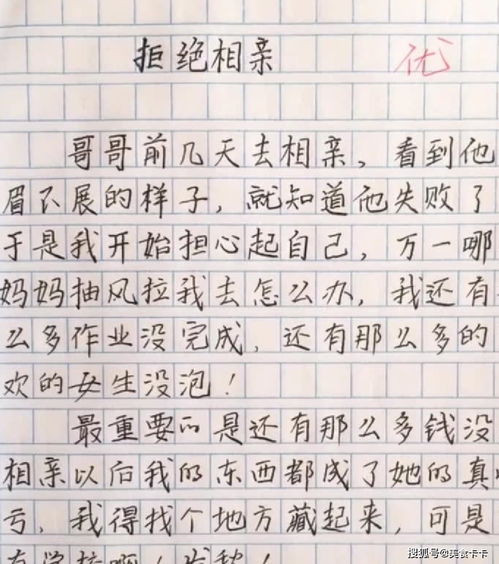 拒绝相亲
优
哥哥前几天去相亲，看到他
眉不展的样子，就知道他失败了
于是我开始担心起自己，万一哪
妈妈抽风拉我去怎么办，我还有
么多作业没完成，还有那么多的
欢的女生没泡！
最重要的是还有那么多钱没
相亲以后我的东西都成了她的真
亏，我得找个地方藏起来，可是
搜狐号@美食卡卡